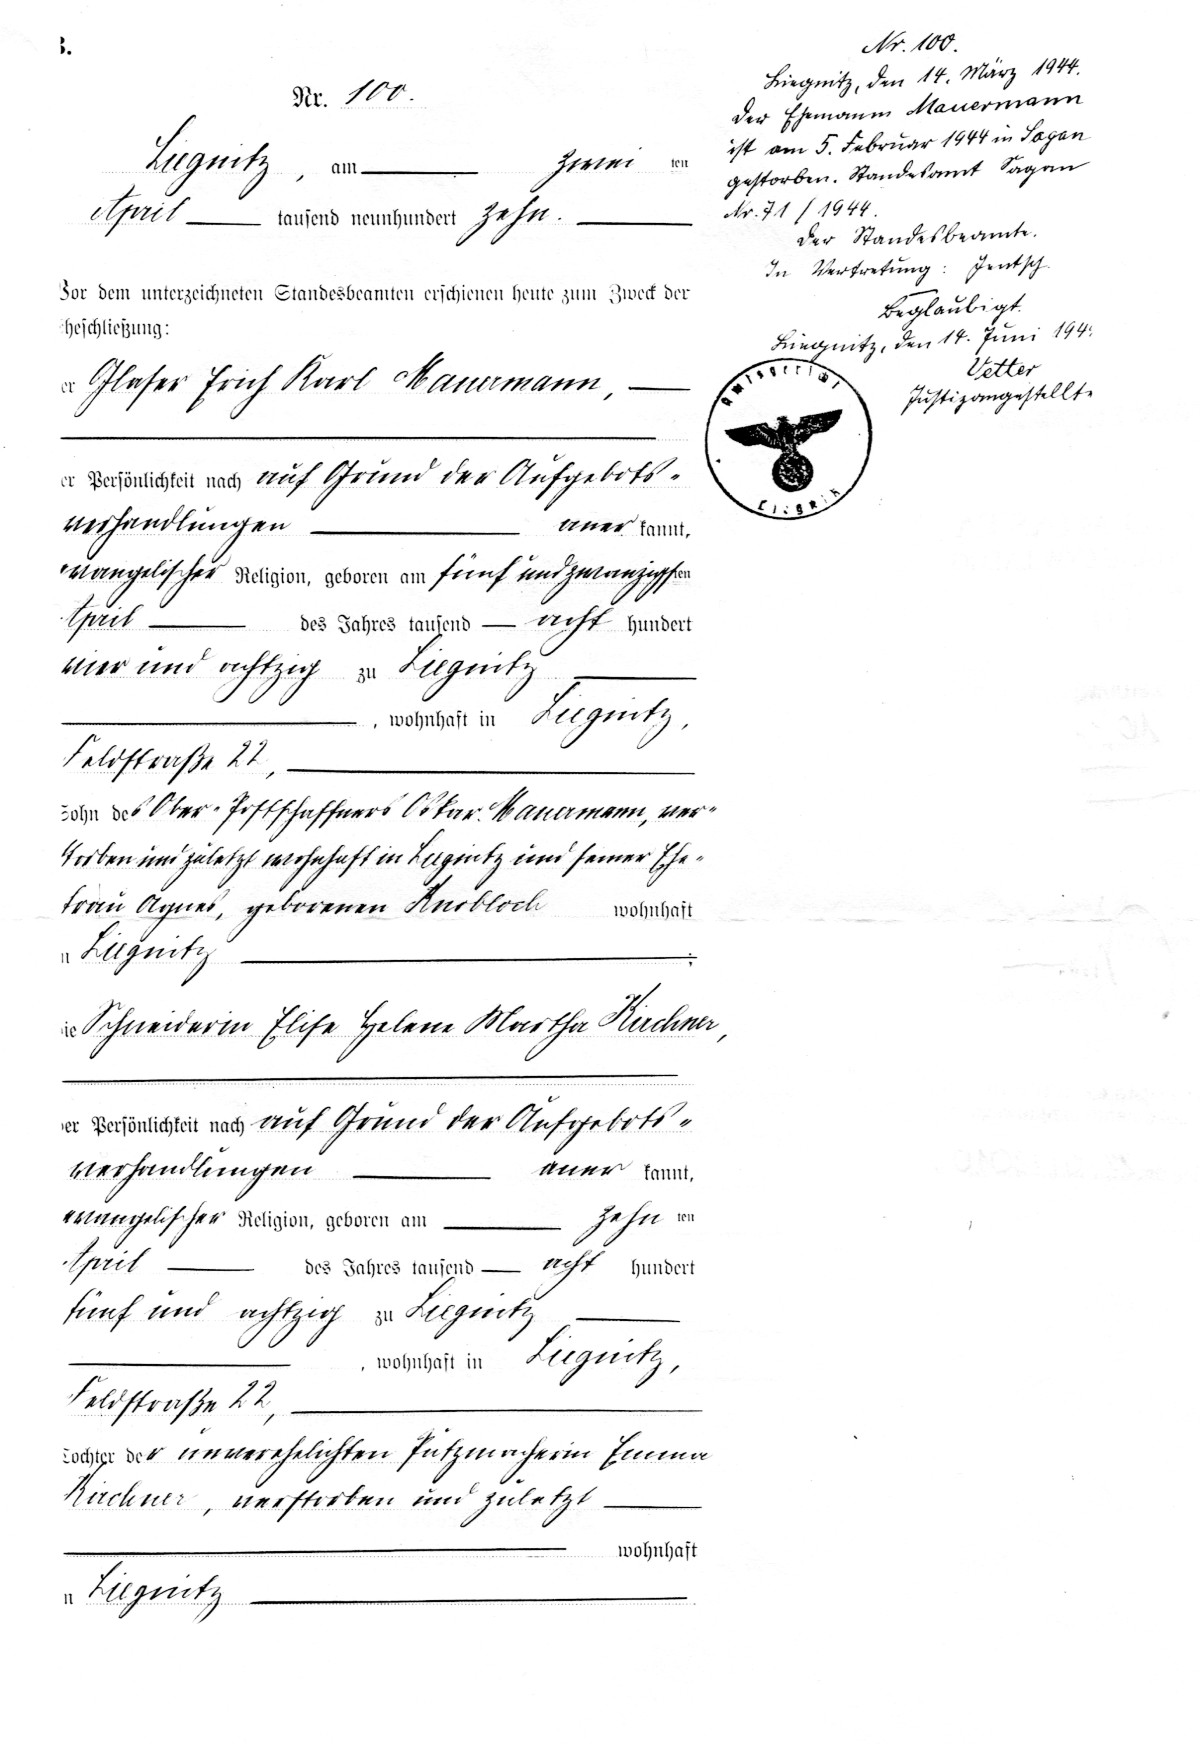 B.
Nr. 100.
Liegnitz, am zwei ten
April tausend neunhundert zehn.
Vor dem unterzeichneten Standesbeamten erschienen heute zum Zweck der
heschließung:
er Glaser Erich Karl Mauermann,
er Persönlichkeit nach auf Grund der Aufgebots-
verhandlungen aner kannt,
evangelischer Religion, geboren am fünf und zwanzigsten
April des Jahres tausend acht hundert
vier und achtzig zu Liegnitz
, wohnhaft in Liegnitz,
Feldstraße 22,
Sohn des Ober-Postschaffners Oskar Mauermann, ver-
storben und zuletzt wohnhaft in Liegnitz und seiner Ehe-
frau Agnes, geborenen Knobloch wohnhaft
n Liegnitz ;
ie Schneiderin Elise Helene Martha Kirchner,
er Persönlichkeit nach auf Grund der Aufgebots-
verhandlungen aner kannt,
evangelischer Religion, geboren am zehn ten
April des Jahres tausend acht hundert
fünf und achtzig zu Liegnitz
, wohnhaft in Liegnitz,
Feldstraße 22,
Tochter der unverehelichten Putzmacherin Emma
Kirchner, verstorben und zuletzt
wohnhaft
n Liegnitz
Nr. 100.
Liegnitz, den 14. März 1944.
Der Ehemann Mauermann
ist am 5. Februar 1944 in Sagan
gestorben. Standesamt Sagan
Nr. 71 / 1944.
Der Standesbeamte.
In Vertretung: Jentsch
Beglaubigt.
Liegnitz, den 14. Juni 194
Vetter
Justizangestellte
Amtsgericht
Liegnitz